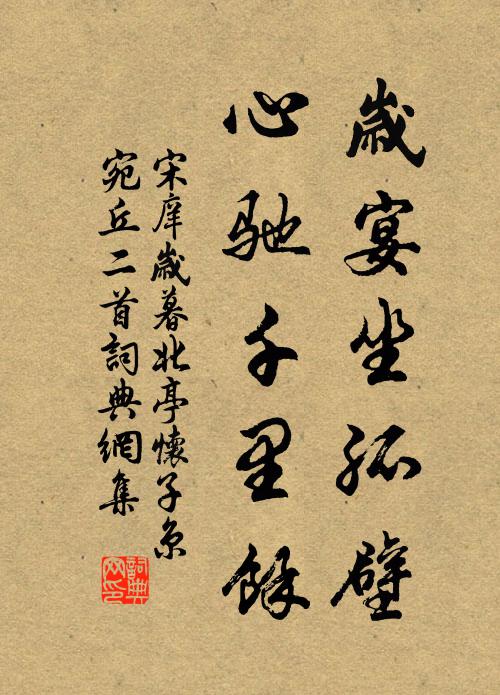 歲宴坐孤壁
心馳千里餘
宋庠歲暮北亭懷子京
宛丘二首詞典網集
詞典
网印